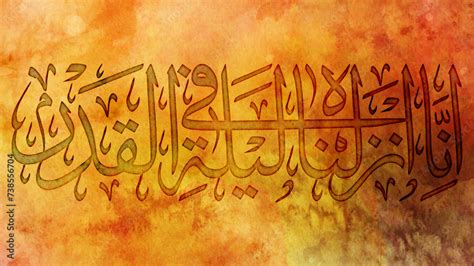 اِنَّا انزلناه في ليلة القدر
Adobe Stock | #738556704